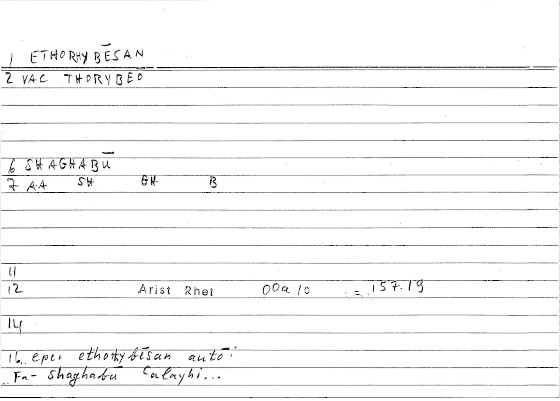 1 ETHORYBĒSAN
2 VAC THORYBEO
6 SHAGHABŪ
7 AA SH GH B
11
12 Arist Rhet 00a10 = 157.19
14
16 epei ethorybēsan autō:
Fa- shaghabū ʿalayhi...